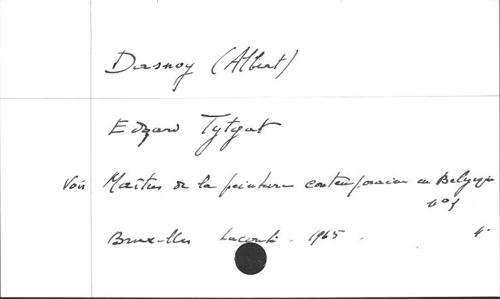 Dasnoy (Albert)
Edgard Tytgat
Voir Maîtres de la peinture contemporaine en Belgique
n°
Bruxelles Laconti . 1965 .